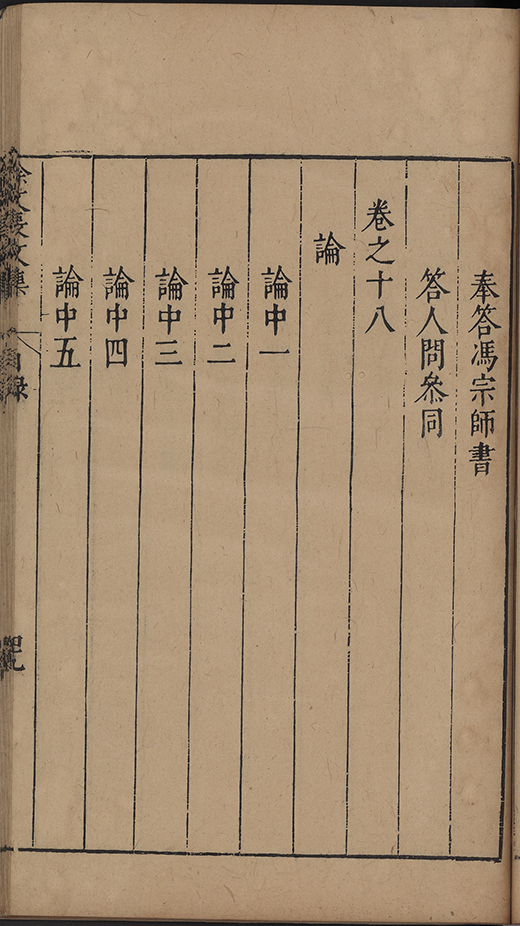 奉答馮宗師書
答人問叅同
卷之十八
論
論中一
論中二
論中三
論中四
論中五
徐文長文集
目錄